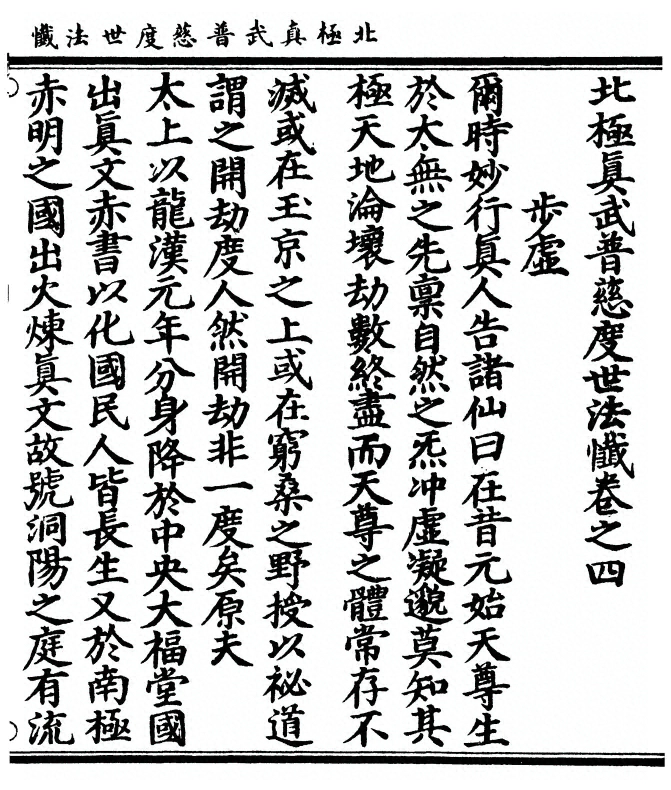 北極真武普慈度世法懺
北極眞武普慈度世法懺卷之四
步虛
爾時妙行眞人告諸仙曰在昔元始天尊生
於太無之先稟自然之炁冲虛凝邈莫知其
極天地淪壞劫數終盡而天尊之體常存不
滅或在玉京之上或在窮桑之野授以祕道
謂之開劫度人然開劫非一度矣原夫
太上以龍漢元年分身降於中央大福堂國
出眞文赤書以化國民人皆長生又於南極
赤明之國出火煉眞文故號洞陽之庭有流